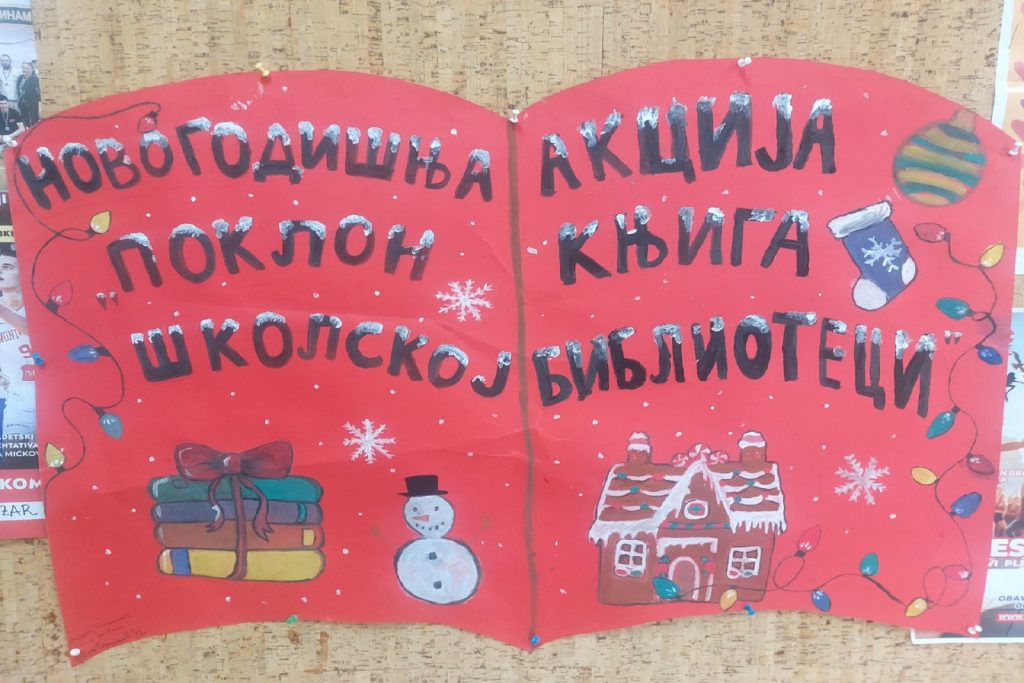 НОВОГОДИШЊА АКЦИЈА
„ПОКЛОН КЊИГА
ШКОЛСКОЈ БИБЛИОТЕЦИ"